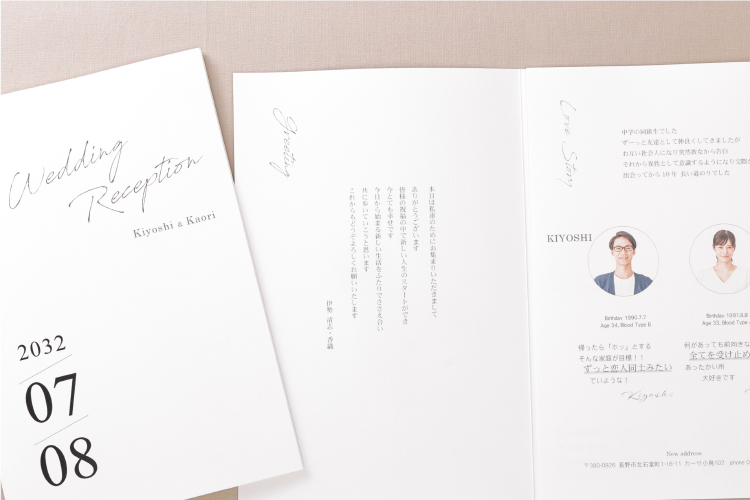 Wedding
Reception
Kiyoshi & Kaori
2032
07
08
Greeting
本日は私達のためにお集まりいただきまして
ありがとうございます
皆様の祝福の中で新しい人生のスタートができ
今とても幸せです
今日から始まる新しい生活をふたりでささえ合い
共に歩いていこうと思います
これからもどうぞよろしくお願いいたします
伊勢 清志・香織
Love Story
中学の同級生でした
ずーっと友達として仲良くしてきましたが
お互い社会人になり突然彼から告白
それから異性として意識するようになり交際
出会ってから10年 長い道のりでした
KIYOSHI
Birthday 1990.7.7
Age 34, Blood Type B
帰ったら「ホッ」とする
そんな家庭が目標！！
ずっと恋人同士みたい
でいような！
Kiyoshi
Birthday 1991.8.8
Age 33, Blood Type
何があっても前向きな
全てを受け止め
あったかい所
大好きです
New address
〒380-0826 長野市北石堂町1-16-11 カーサ小鳥102 phone 0